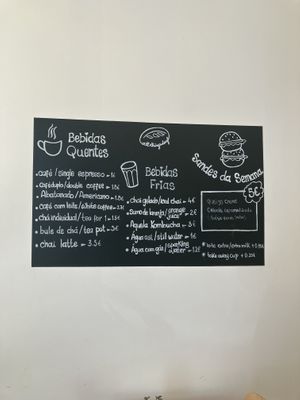 Bebidas
Quentes
• café/single espresso - 1€
• café duplo/double coffee - 1.8€
• Abatanado/Americano - 1.8€
• café com leite/white coffee - 2.3€
• chá individual/tea for 1 - 1.5€
• bule de chá/tea pot - 3€
• chai latte - 3.5€
Bebidas
Frias
• chai gelado/iced chai - 4€
• Sumo de laranja/orange juice - 3€
• Aquela Kombucha - 3€
• Água s/g/still water - 1€
• Água com gás/sparkling water - 1.2€
Sandes da Semana
5€
Queijo creme
• leite extra/extra milk + 0.15€
• take away cup + 0.25€